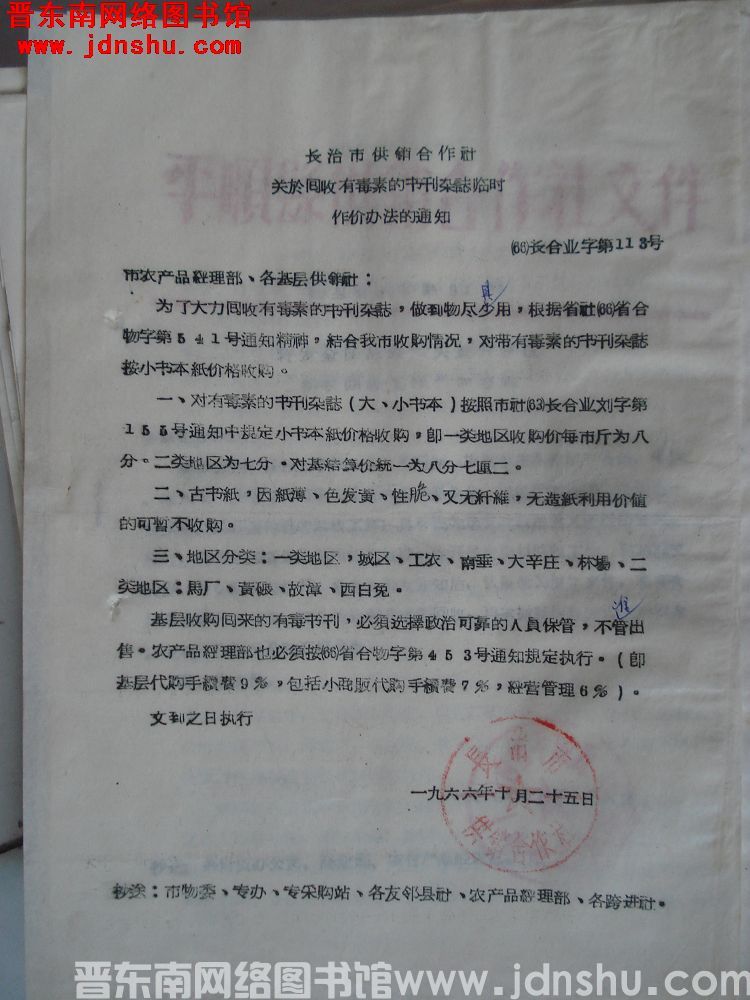 晋东南网络图书馆
www.jdnshu.com
长治市供销合作社
关於回收有毒素的书刊杂誌临时
作价办法的通知
(66)长合业字第113号
市农产品經理部、各基层供销社：
为了大力回收有毒素的书刊杂誌，做到物尽其用，根据省社(66)省合
物字第541号通知精神，結合我市收购情况，对带有毒素的书刊杂誌
按小书本紙价格收购。
一、对有毒素的书刊杂誌（大、小书本）按照市社(63)长合业刘字第
155号通知中規定小书本紙价格收购，卽一类地区收购价每市斤为八
分。二类地区为七分。对基結算价統一为八分七厘二。
二、古书紙，因紙薄、色发黃、性脆、又无纤維，无造紙利用价值
的可暂不收购。
三、地区分类：一类地区，城区、工农、南垂、大辛庄、林場、二
类地区：馬厂、黃碾、故漳、西白兔。
基层收购回来的有毒书刊，必須选擇政治可靠的人員保管，不准出
售。农产品經理部也必須按(66)省合物字第453号通知規定执行。（卽
基层代购手續費9％，包括小商販代购手續費7％，經营管理6％）。
文到之日执行
一九六六年十月二十五日
长治市
供销合作社
抄送：市物委、专办、专采购站、各友邻县社、农产品經理部、各跨进社。
晋东南网络图书馆www.jdnshu.com